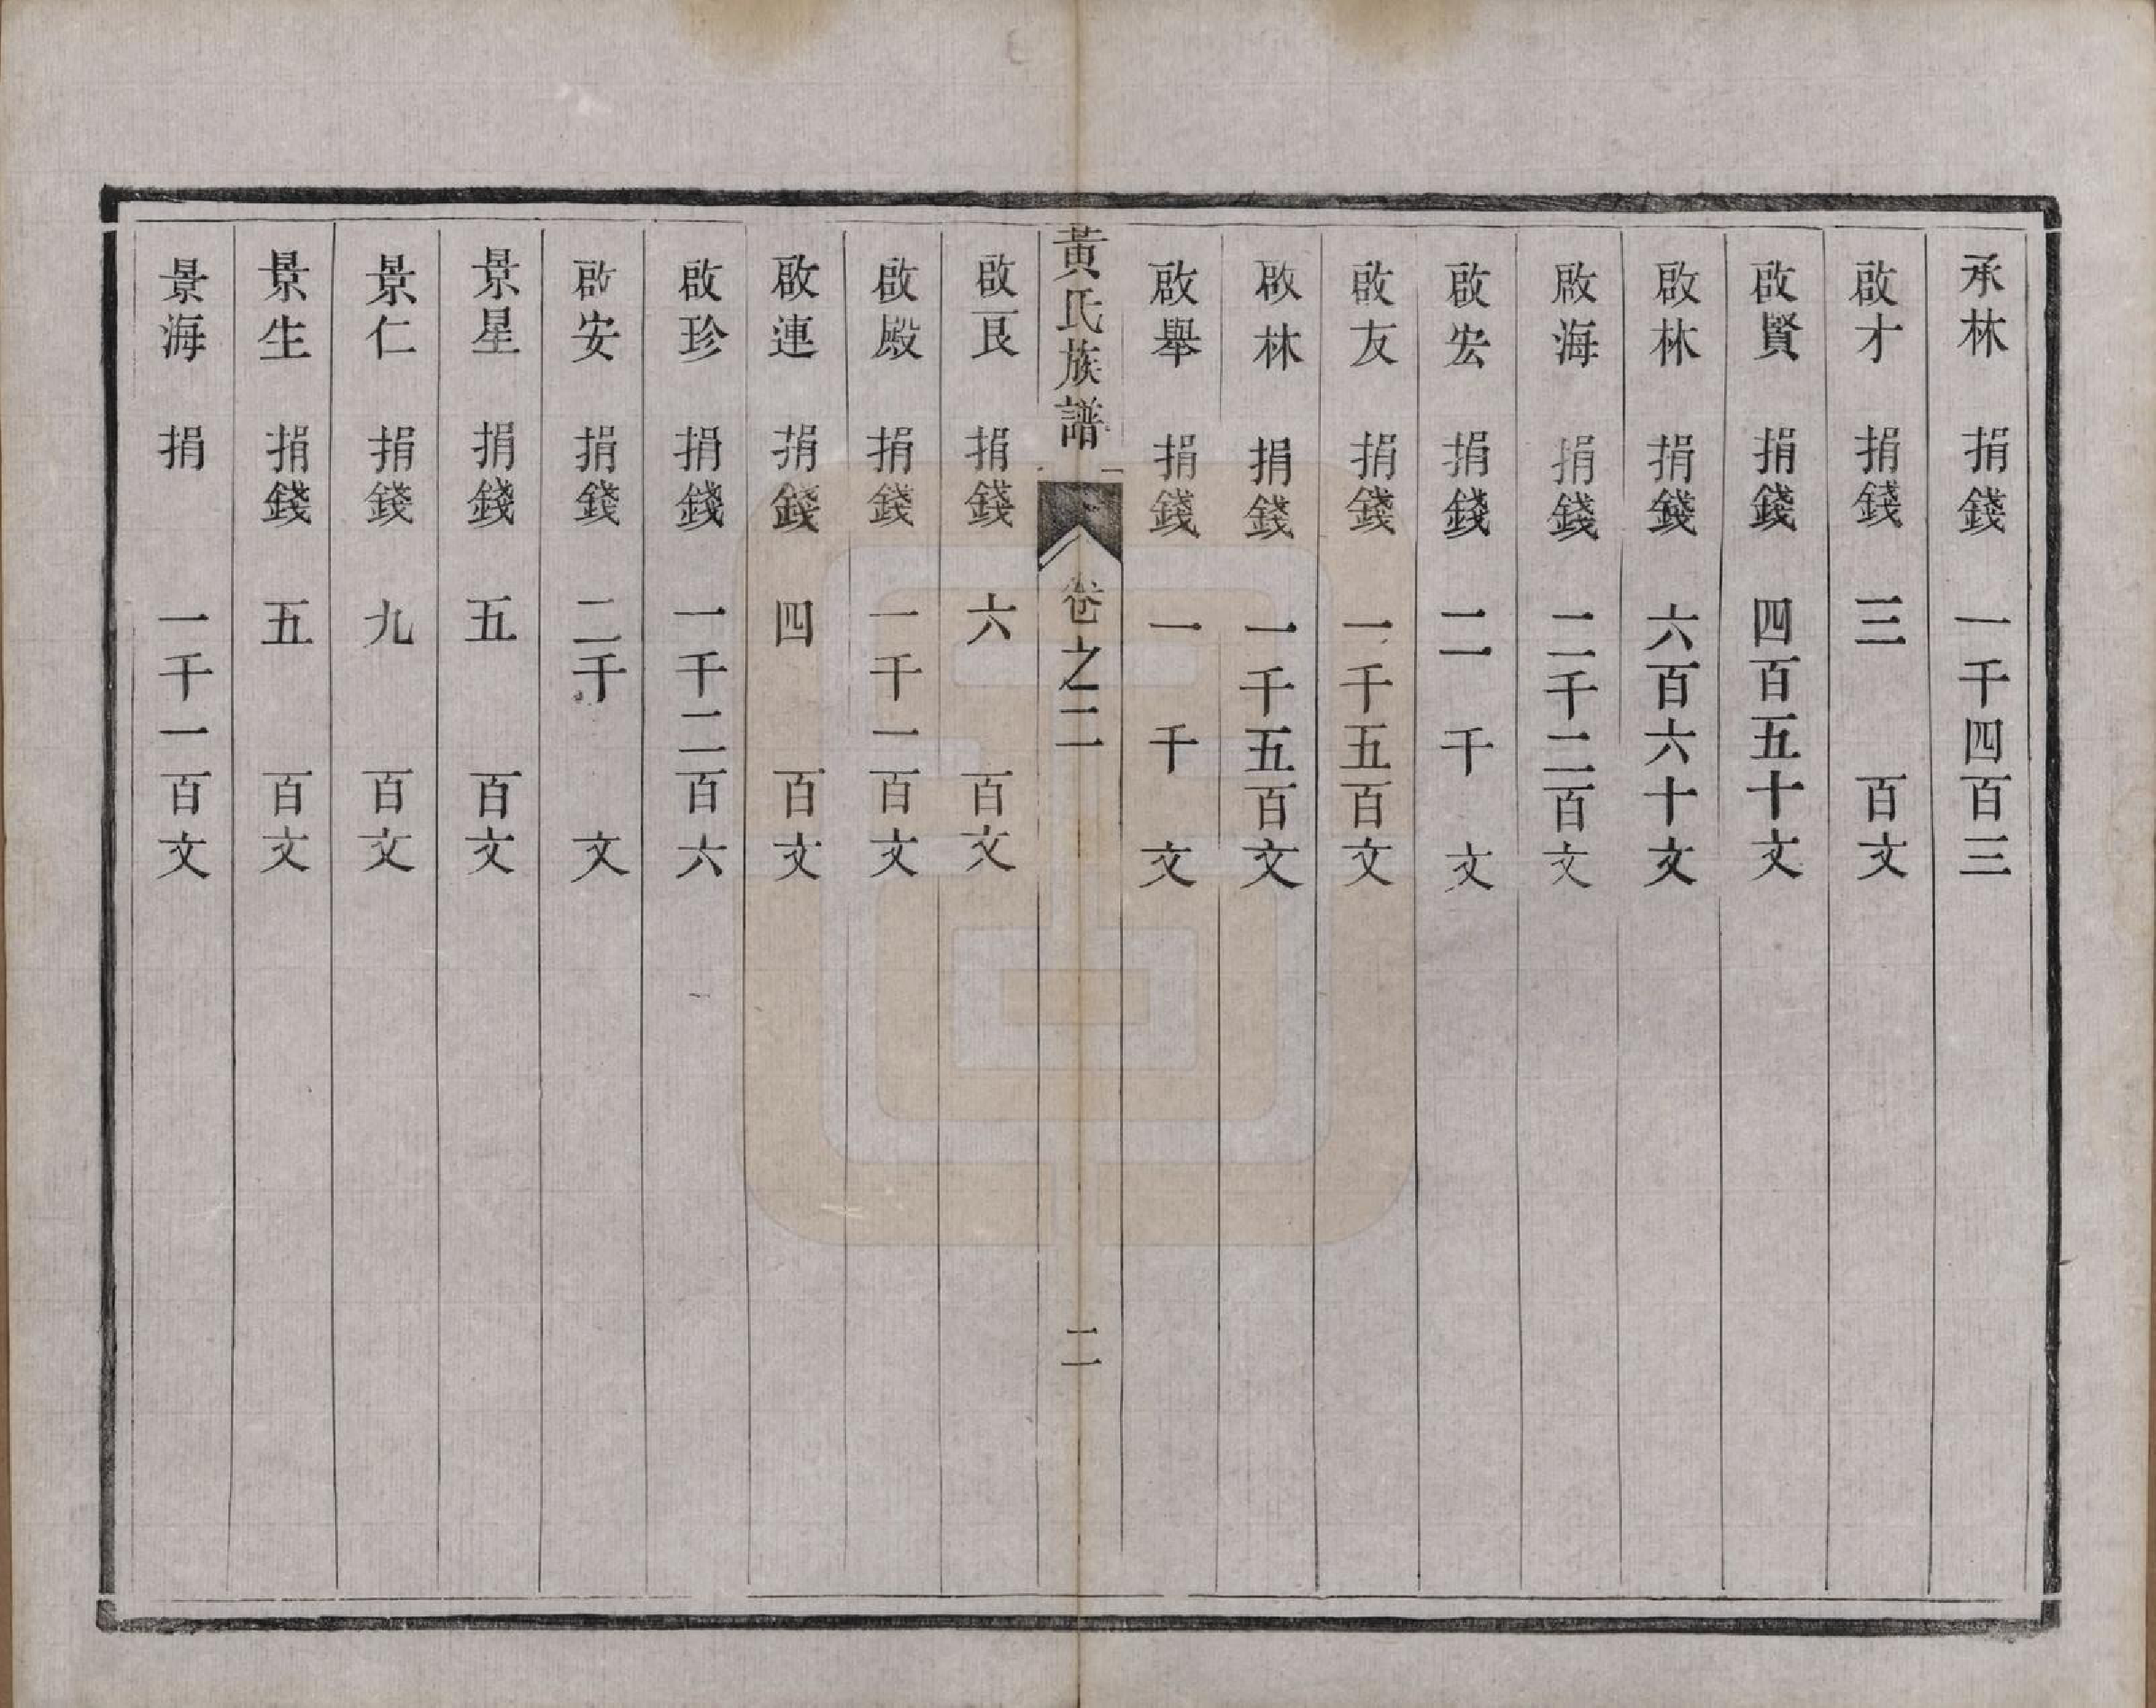 承林　捐錢　一千四百三
啟才　捐錢　三　百文
啟賢　捐錢　四百五十文
啟林　捐錢　六百六十文
啟海　捐錢　二千二百文
啟宏　捐錢　二千文
啟友　捐錢　一千五百文
啟林　捐錢　一千五百文
啟舉　捐錢　一千文
黃氏族譜　卷之二　二
啟艮　捐錢　六　百文
啟殿　捐錢　一千一百文
啟連　捐錢　四　百文
啟珍　捐錢　一千二百六
啟安　捐錢　二千　文
景星　捐錢　五　百文
景仁　捐錢　九　百文
景生　捐錢　五　百文
景海　捐　一千一百文